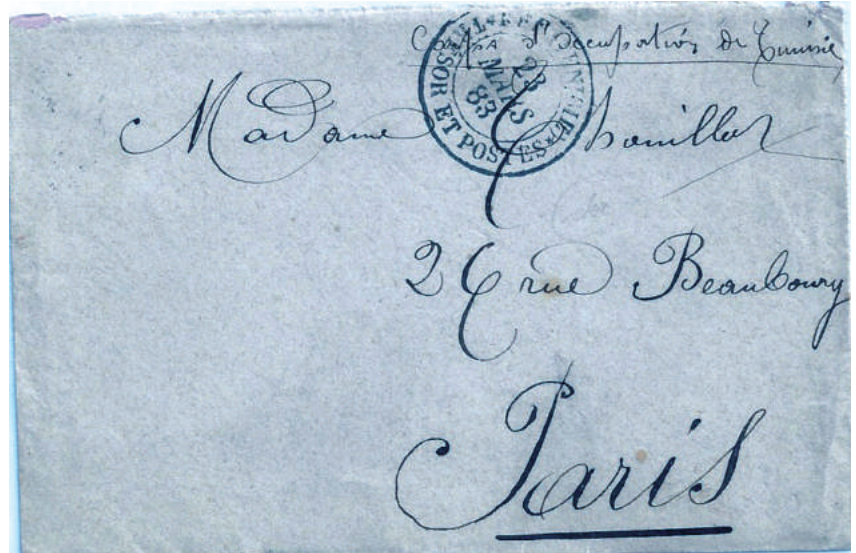 Corps d'occupation de Tunisie
TRESOR ET POSTES
23
MARS
83
Madame
26 rue Beaubourg
Paris